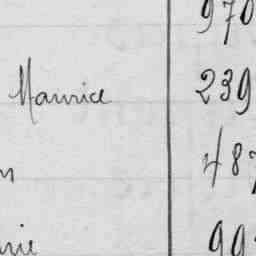 970
Maurice 239
487
99